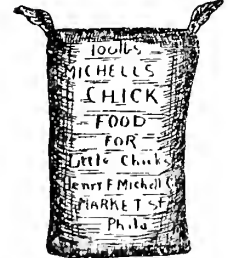 100lbs
MICHELLS
CHICK
FOOD
FOR
Little Chicks
Henry F Michell C
MARKET St
Phila